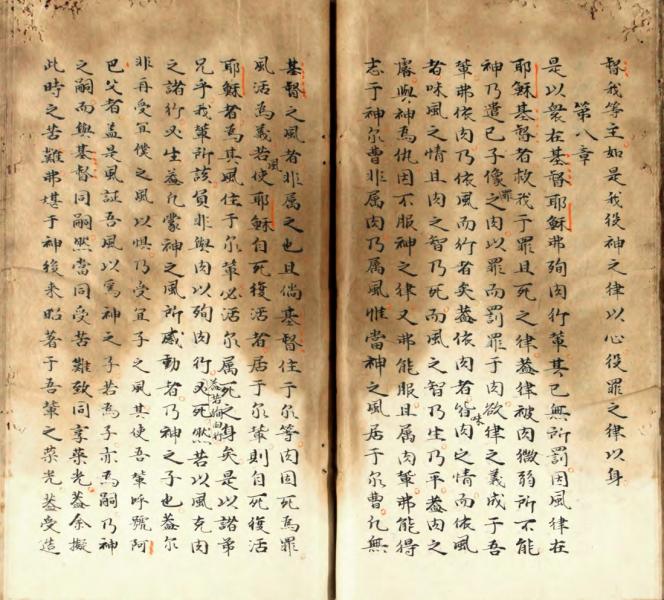 督我等主如是我役神之律以心役罪之律以身
第八章
是以衆在基督耶穌弗殉肉行輩其已無所罰因風律在
耶穌基督者救我于罪且死之律蓋律被肉微弱所不能
神乃遣己子像罪之肉以罪而罰罪于肉欲律之義成于吾
輩弗依肉乃依風而行者矣蓋依肉者皆味肉之情而依風
者味風之情且肉之智乃死而風之智乃生乃平蓋肉之
與神為仇因不服神之律又弗能服且属肉輩弗能得
志于神尔曹非属肉乃属風惟當神之風居于尔曹凢無
基督之風者非属之也且倘基督住于尔等肉因死為罪
風活為義若風使耶穌自死復活者居于尔輩則自死復活
耶穌者為其風住于尔輩必活尔属死之身矣是以諸弟
兄乎我輩所該負非與肉以殉肉行蓋若殉肉行又死然若以風克肉
之諸行又生蓋凢蒙神之風所感動者乃神之子也蓋尔
非再受宜僕之風以惧乃受宜子之風其使吾輩呼號阿
巴父者蓋是風証吾風以為神之子若為子亦為嗣乃神
之嗣而與基督同嗣然當同受苦難致同享荣光蓋余擬
此時之苦難弗堪于神後来昭著于吾輩之荣光蓋受造